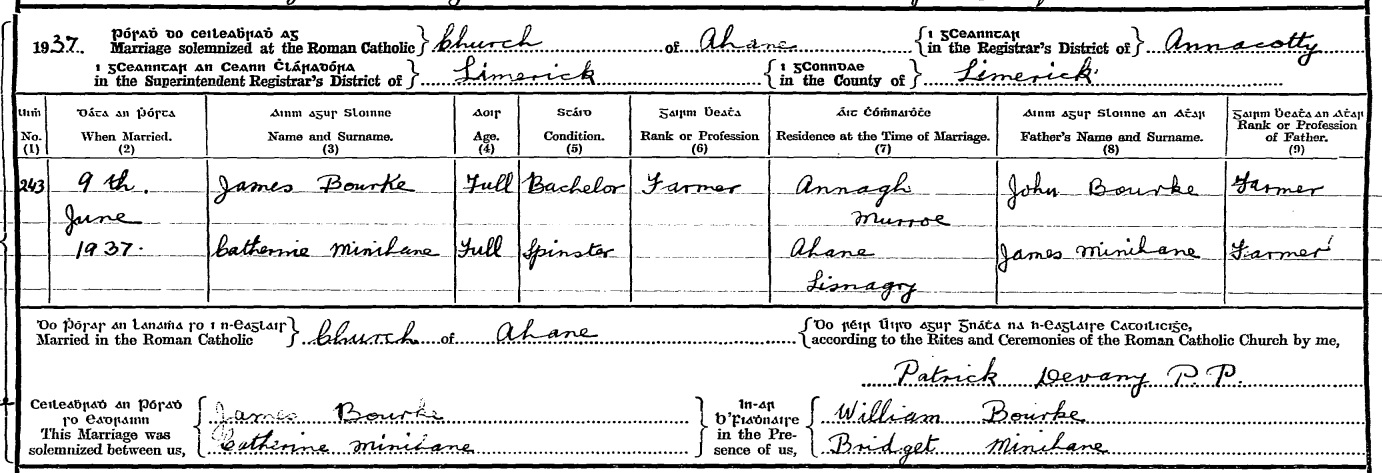 1937. Pórad do ceileabrad ag
Marriage solemnized at the Roman Catholic } Church of Ahane { i gCeanntar
in the Registrar's District of } Annacotty
i gCeanntar an Ceann Cláradóra
in the Superintendent Registrar's District of } Limerick { i gConndae
in the County of } Limerick
Uimh Dáta an Pórta Ainm agur Sloinne Aoir Stáid Gairm Beata Áit Cómnaróte Ainm agur Sloinne an Atar Gairm Beata an Atar
No. When Married. Name and Surname. Age. Condition. Rank or Profession Residence at the Time of Marriage. Father's Name and Surname. Rank or Profession of Father.
(1) (2) (3) (4) (5) (6) (7) (8) (9)
243 9th. James Bourke Full Bachelor Farmer Annagh John Bourke Farmer
June Murroe
1937. Catherine Minihane Full Spinster Ahane James Minihane Farmer
Lisnagry
Do Pórar an lanama ro i n-Eaglair
Married in the Roman Catholic } Church of Ahane { Do réir Úird agur Gnáta na h-Eaglaire Catoilicige,
according to the Rites and Ceremonies of the Roman Catholic Church by me,
Patrick Devany P.P.
Ceileabrad an Pórad
ro eadrainn
This Marriage was
solemnized between us, { James Bourke
Catherine Minihane
In-ar
b'Fiadnaire
in the Pre-
sence of us, { William Bourke
Bridget Minihane